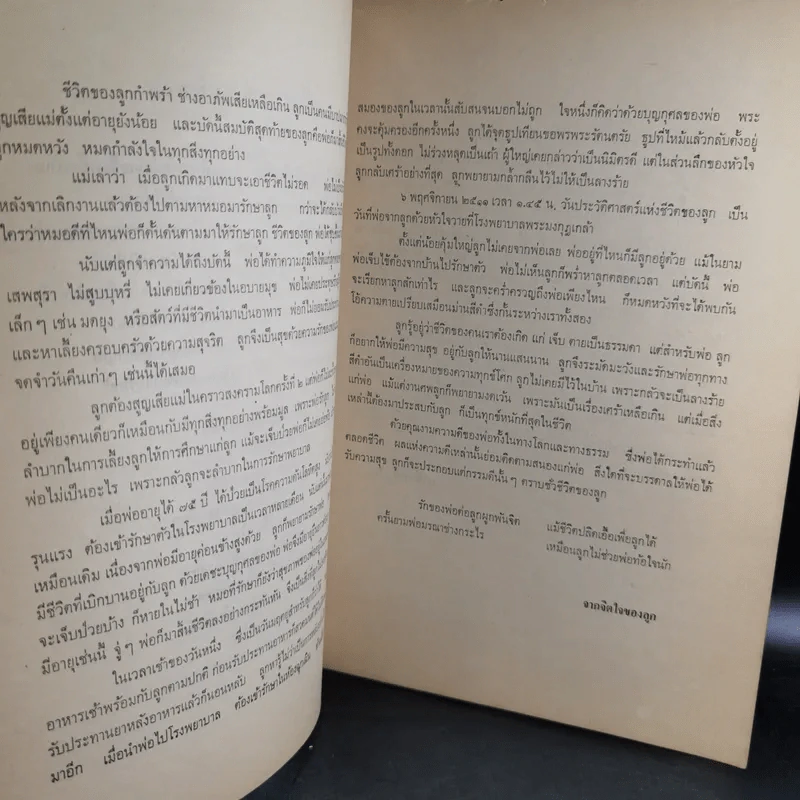 ชีวิตของลูกกำพร้า ช่างอาภัพเสียเหลือเกิน ลูกเป็นคนมี
ญเสียแม่ตั้งแต่อายุยังน้อย และบัดนี้สมบัติสุดท้ายของลูกคือพ่อ
ลูกหมดหวัง หมดกำลังใจในทุกสิ่งทุกอย่าง
แม่เล่าว่า เมื่อลูกเกิดมาแทบจะเอาชีวิตไม่รอด
หลังจากเลิกงานแล้วต้องไปตามหาหมอมารักษาลูก กว่าจะได้
ใครว่าหมอดีที่ไหนพ่อก็ดั้นด้นตามมาให้รักษาลูก ชีวิตของลูก
นับแต่ลูกจำความได้ถึงบัดนี้ พ่อได้ทำความภูมิใจให้
เสพสุรา ไม่สูบบุหรี่ ไม่เคยเกี่ยวข้องในอบายมุข พ่อไม่เคย
เล็ก ๆ เช่น มดยุง หรือสัตว์ที่มีชีวิตนำมาเป็นอาหาร พ่อก็ไม่ยอม
และหาเลี้ยงครอบครัวด้วยความสุจริต ลูกจึงเป็นสุขด้วยความรักของ
จดจำวันคืนเก่า ๆ เช่นนี้ได้เสมอ
ลูกต้องสูญเสียแม่ในคราวสงครามโลกครั้งที่ ๒
อยู่เพียงคนเดียวก็เหมือนกับมีทุกสิ่งทุกอย่างพร้อมมูล เพราะพ่อรักลูก
ลำบากในการเลี้ยงลูกให้การศึกษาแก่ลูก แม้จะเจ็บป่วยพ่อก็ไม่
พ่อไม่เป็นอะไร เพราะกลัวลูกจะลำบากในการรักษาพยาบาล
เมื่อพ่ออายุได้ ๗๕ ปี ได้ป่วยเป็นโรคความดันโลหิตสูง
รุนแรง ต้องเข้ารักษาตัวในโรงพยาบาลเป็นเวลาหลายเดือน
เหมือนเดิม เนื่องจากพ่อมีอายุค่อนข้างสูงด้วย ลูกก็พยายามรักษาพ่อ
มีชีวิตที่เบิกบานอยู่กับลูก ด้วยเดชะบุญกุศลของพ่อ พ่อจึงมีอายุ
จะเจ็บป่วยบ้าง ก็หายในไม่ช้า หมอที่รักษาก็ยังว่าสุขภาพของพ่อ
มีอายุเช่นนี้ จู่ ๆ พ่อก็มาสิ้นชีวิตลงอย่างกระทันหัน
ในเวลาเช้าของวันหนึ่ง ซึ่งเป็นวัน
อาหารเช้าพร้อมกับลูกตามปกติ ก่อนรับประทานอาหาร
รับประทานยาหลังอาหารแล้วก็นอนหลับ ลูกหารู้ไม่ว่าเป็นการ
มาอีก เมื่อนำพ่อไปโรงพยาบาล ต้องเข้ารักษาในห้องฉุกเฉิน
สมองของลูกในเวลานั้นสับสนจนบอกไม่ถูก ใจหนึ่งก็คิดว่าด้วยบุญกุศลของพ่อ พระ
คงจะคุ้มครองอีกครั้งหนึ่ง ลูกได้จุดธูปเทียนขอพรพระรัตนตรัย ธูปที่ไหม้แล้วกลับตั้งอยู่
เป็นรูปทั้งดอก ไม่ร่วงหลุดเป็นเถ้า ผู้ใหญ่เคยกล่าวว่าเป็นนิมิตรดี แต่ในส่วนลึกของหัวใจ
ลูกกลับเศร้าอย่างที่สุด ลูกพยายามกล้ำกลืนไว้ไม่ให้เป็นลางร้าย
๖ พฤศจิกายน ๒๕๑๑ เวลา ๑.๔๕ น. วันประวัติศาสตร์แห่งชีวิตของลูก เป็น
วันที่พ่อจากลูกด้วยหัวใจวายที่โรงพยาบาลพระมงกุฎเกล้า
ตั้งแต่น้อยคุ้มใหญ่ลูกไม่เคยจากพ่อเลย พ่ออยู่ที่ไหนก็มีลูกอยู่ด้วย แม้ในยาม
พ่อเจ็บไข้ต้องจากบ้านไปรักษาตัว พ่อไม่เห็นลูกก็พร่ำหาลูกตลอดเวลา แต่บัดนี้ พ่อ
จะเรียกหาลูกสักเท่าไร และลูกจะคร่ำครวญถึงพ่อเพียงไหน ก็หมดหวังที่จะได้พบกัน
โอ้ความตายเปรียบเสมือนม่านสีดำซึ่งกั้นระหว่างเราทั้งสอง
ลูกรู้อยู่ว่าชีวิตของคนเราต้องเกิด แก่ เจ็บ ตายเป็นธรรมดา แต่สำหรับพ่อ ลูก
ก็อยากให้พ่อมีความสุข อยู่กับลูกให้นานแสนนาน ลูกจึงระมัดะวังและรักษาพ่อทุกทาง
สีดำอันเป็นเครื่องหมายของความทุกข์โศก ลูกไม่เคยมีไว้ในบ้าน เพราะกลัวจะเป็นลางร้าย
แก่พ่อ แม้แต่งานศพลูกก็พยายามงดเว้น เพราะมันเป็นเรื่องเศร้าเหลือเกิน แต่เมื่อสิ่ง
เหล่านี้ต้องมาประสบกับลูก ก็เป็นทุกข์หนักที่สุดในชีวิต
ด้วยคุณงามความดีของพ่อทั้งในทางโลกและทางธรรม ซึ่งพ่อได้กระทำแล้ว
ตลอดชีวิต ผลแห่งความดีเหล่านั้นย่อมติดตามสนองแก่พ่อ สิ่งใดที่จะบรรดาลให้พ่อได้
รับความสุข ลูกก็จะประกอบแต่กรรมดีนั้น ๆ ตราบชั่วชีวิตของลูก
รักของพ่อต่อลูกผูกพันจิต แม้ชีวิตปลิดเอื้อเพื่อลูกได้
ครั้นยามพ่อมรณาช่างกระไร เหมือนลูกไม่ช่วยพ่อท้อใจนัก
จากจิตใจของลูก